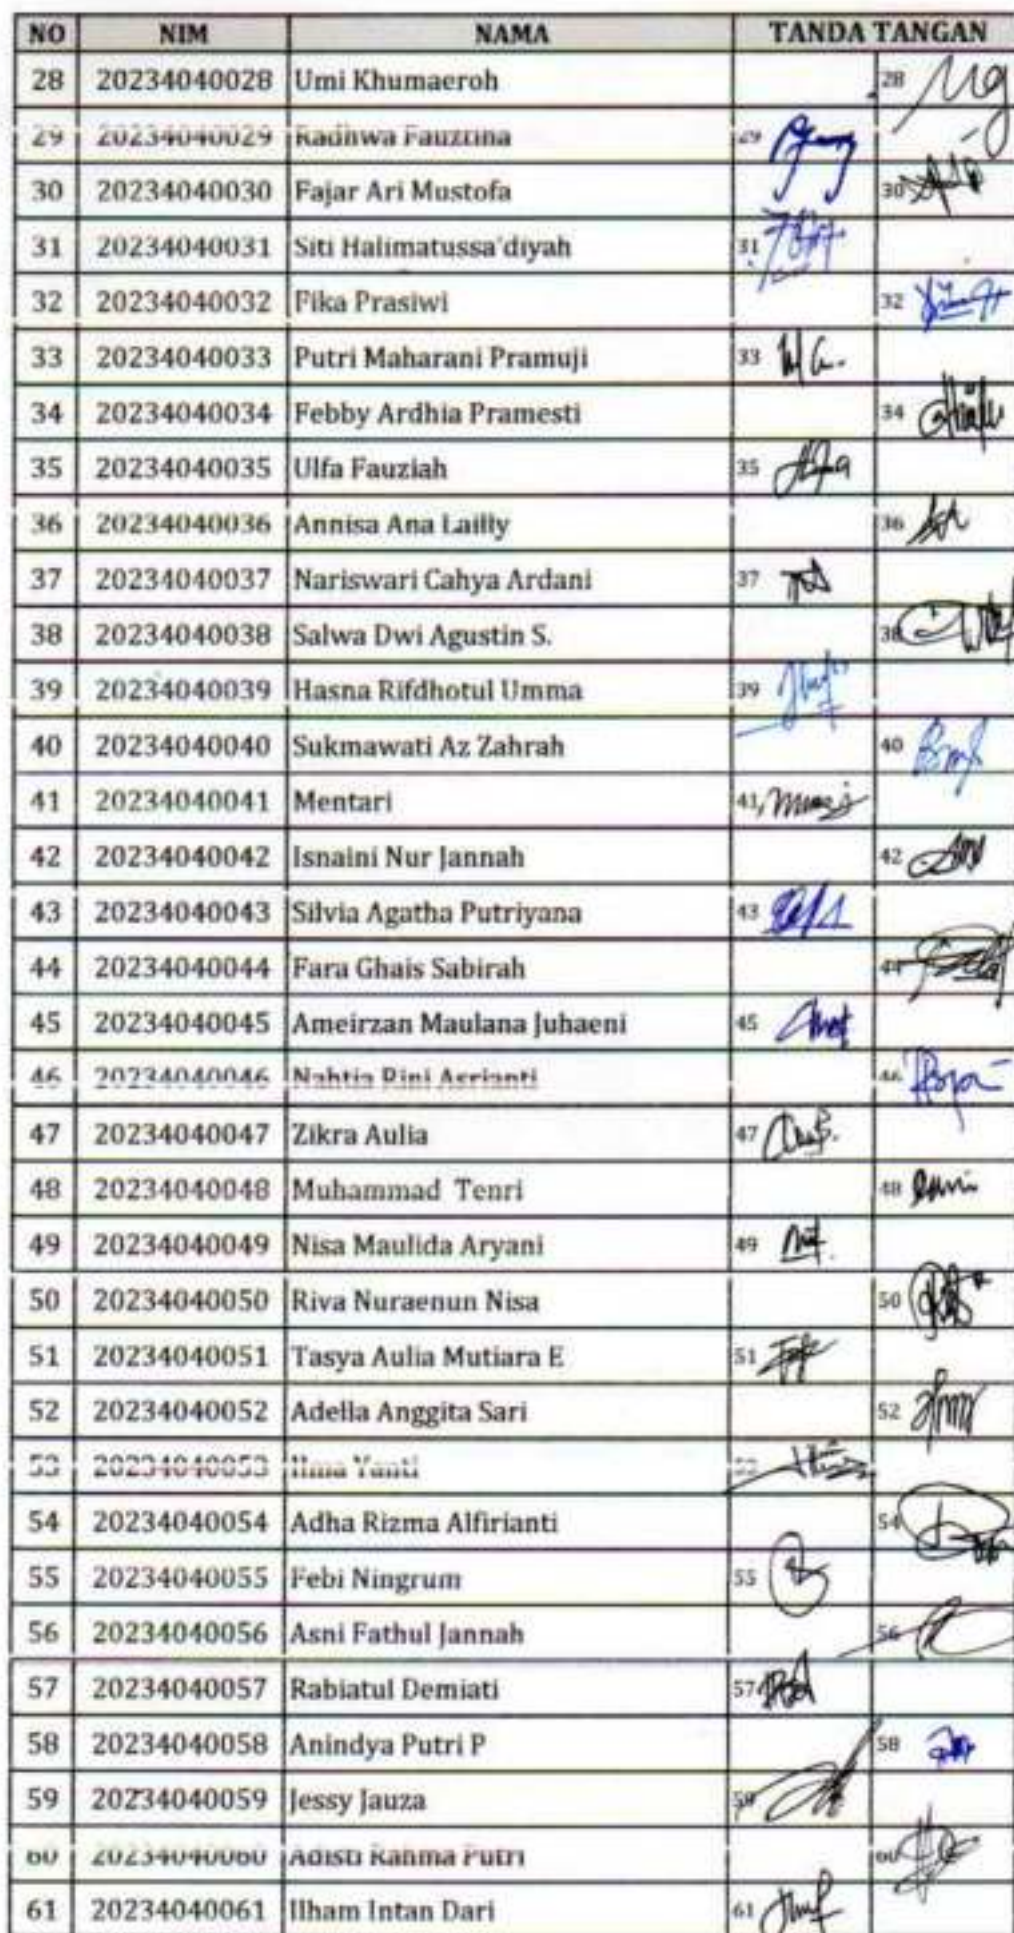 NO NIM NAMA TANDA TANGAN
28 20234040028 Umi Khumaeroh 28
29 20234040029 Radhwa Fauztina 29
30 20234040030 Fajar Ari Mustofa 30
31 20234040031 Siti Halimatussa'diyah 31
32 20234040032 Fika Prasiwi 32
33 20234040033 Putri Maharani Pramuji 33
34 20234040034 Febby Ardhia Pramesti 34
35 20234040035 Ulfa Fauziah 35
36 20234040036 Annisa Ana Lailly 36
37 20234040037 Nariswari Cahya Ardani 37
38 20234040038 Salwa Dwi Agustin S. 38
39 20234040039 Hasna Rifdhotul Umma 39
40 20234040040 Sukmawati Az Zahrah 40
41 20234040041 Mentari 41
42 20234040042 Isnaini Nur Jannah 42
43 20234040043 Silvia Agatha Putriyana 43
44 20234040044 Fara Ghais Sabirah 44
45 20234040045 Ameirzan Maulana Juhaeni 45
46 20234040046 Nahtia Rini Asrianti 46
47 20234040047 Zikra Aulia 47
48 20234040048 Muhammad Tenri 48
49 20234040049 Nisa Maulida Aryani 49
50 20234040050 Riva Nuraenun Nisa 50
51 20234040051 Tasya Aulia Mutiara E 51
52 20234040052 Adella Anggita Sari 52
53 20234040053 Ilma Yanti 53
54 20234040054 Adha Rizma Alfirianti 54
55 20234040055 Febi Ningrum 55
56 20234040056 Asni Fathul Jannah 56
57 20234040057 Rabiatul Demiati 57
58 20234040058 Anindya Putri P 58
59 20234040059 Jessy Jauza 59
60 20234040060 Adisti Rahma Putri 60
61 20234040061 Ilham Intan Dari 61